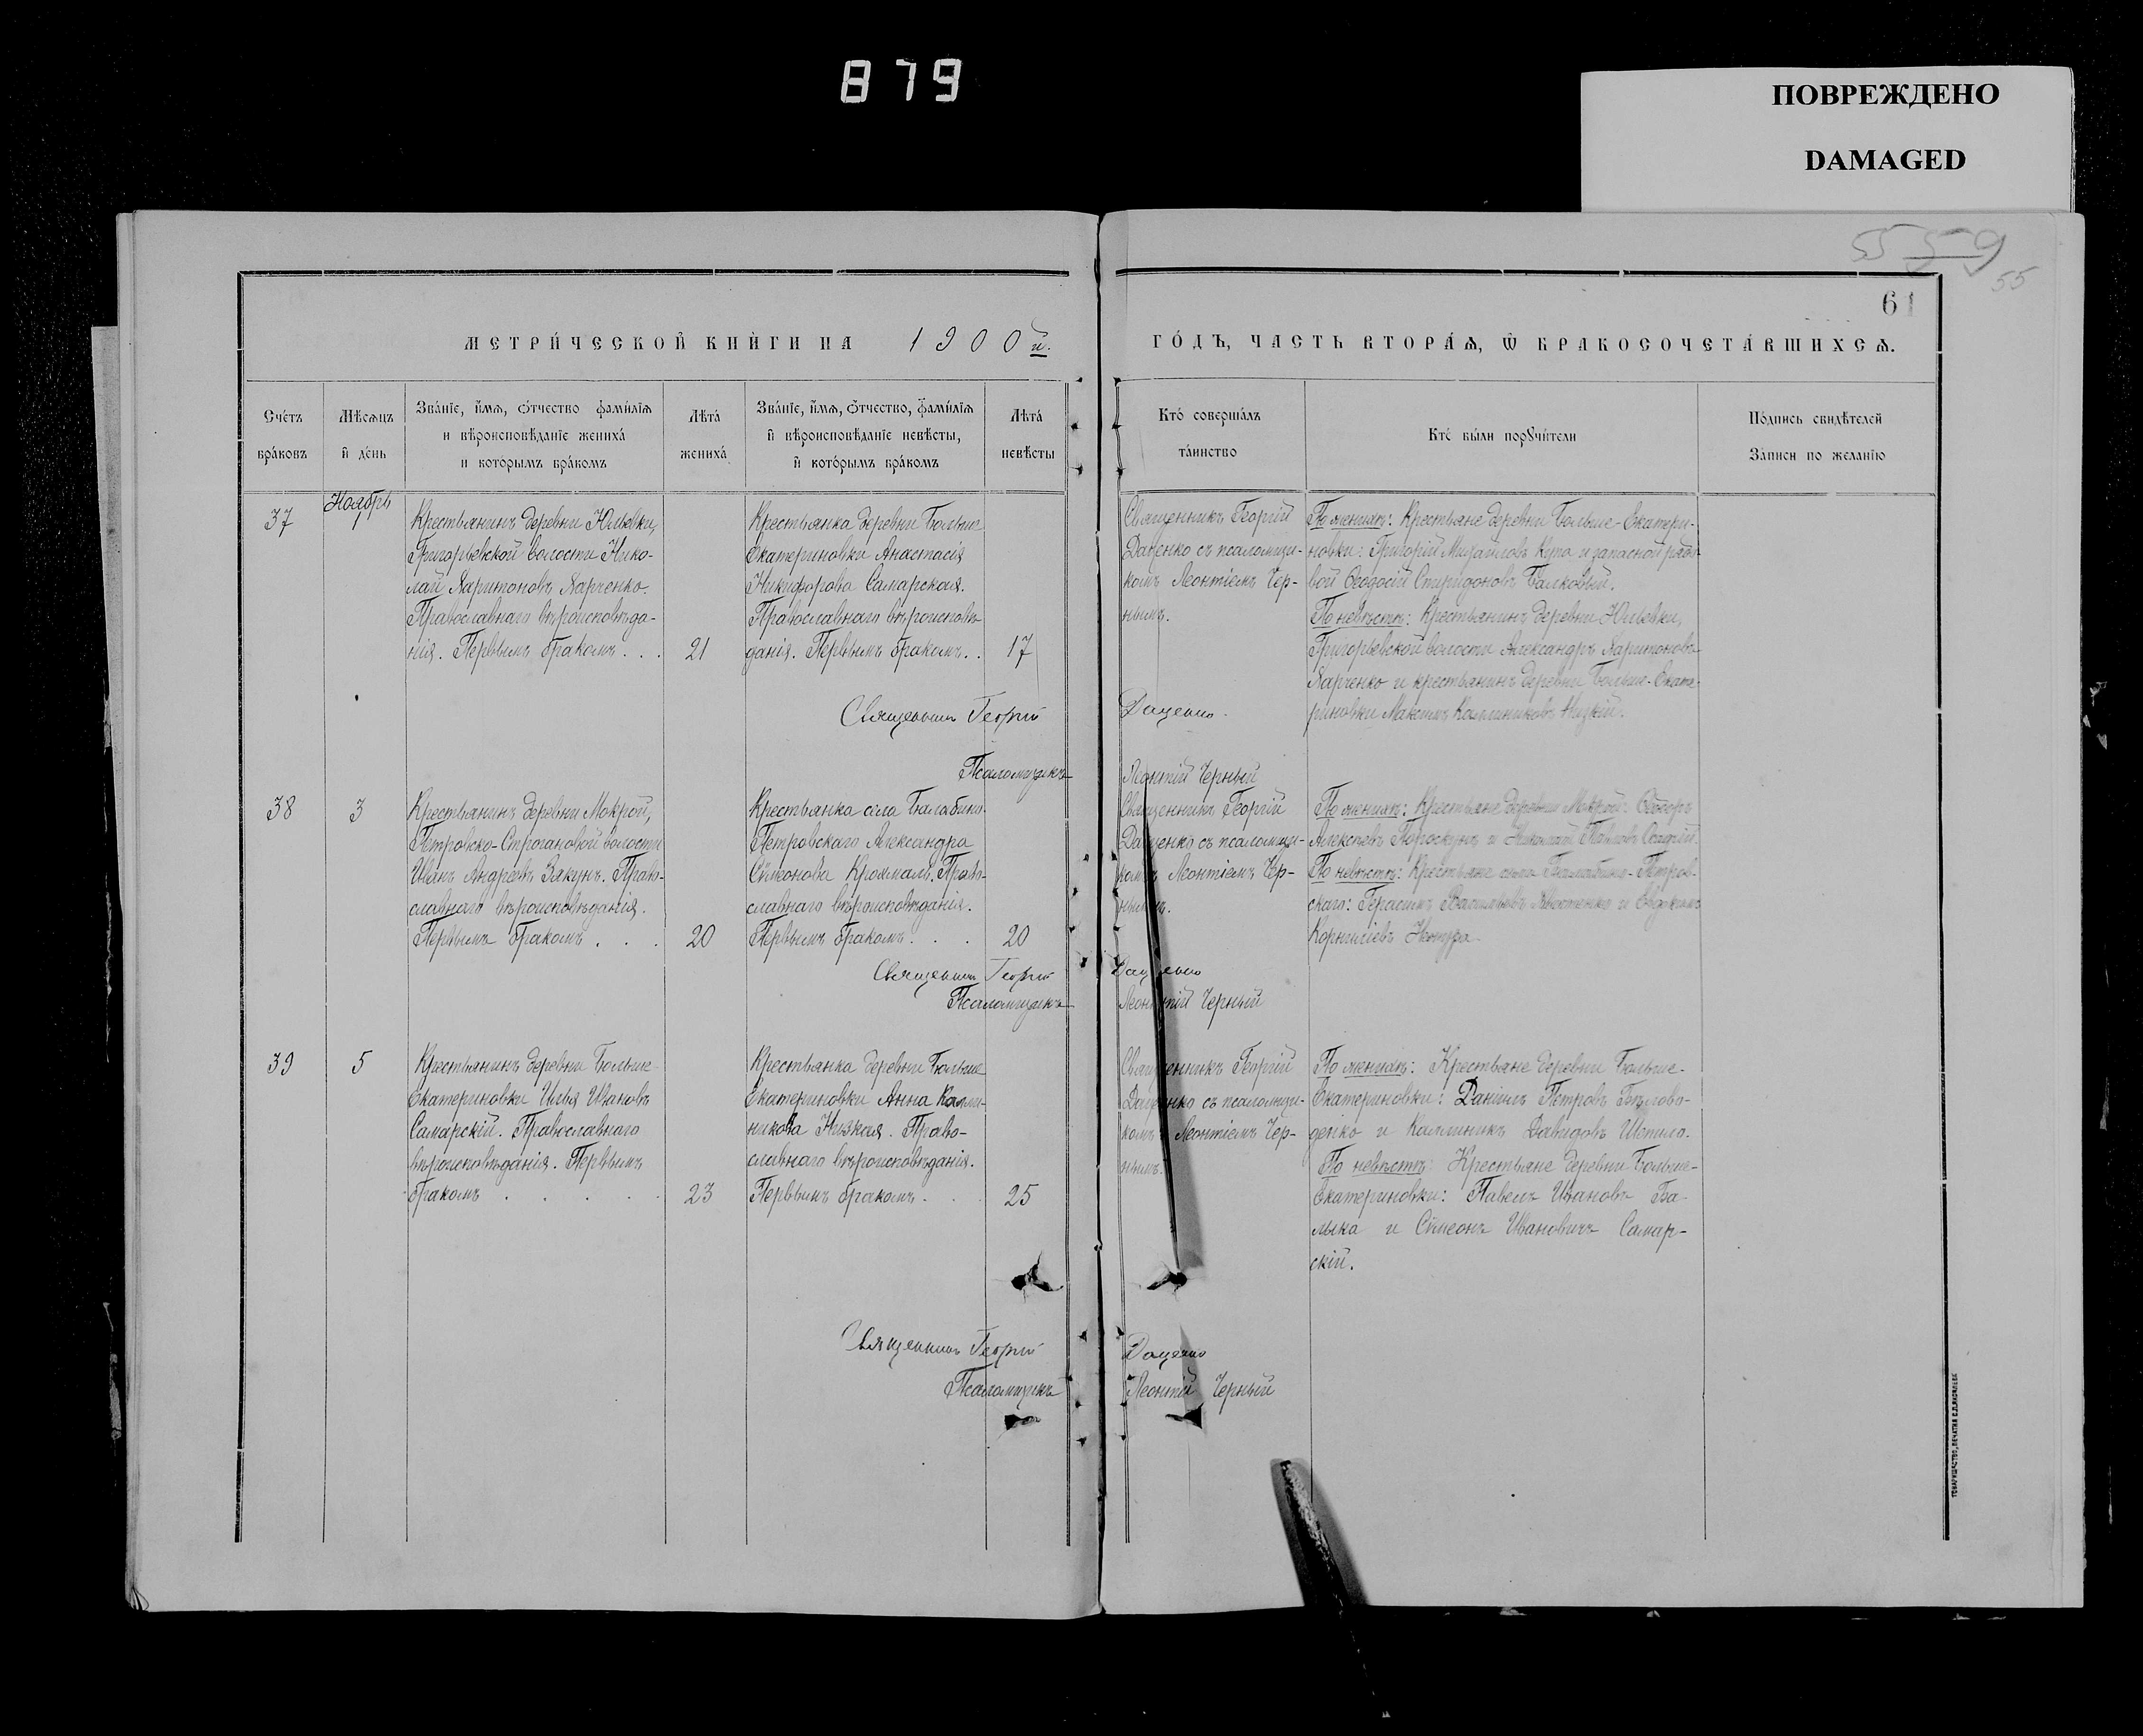 879
ПОВРЕЖДЕНО
DAMAGED
55 59
55
61
МЕТРИ́ЧЕСКОЙ КНИ́ГИ НА 1900 й.
ГО́ДЪ, ЧАСТЬ ВТОРА́Ѧ, Ѽ БРАКОСОЧЕТА́ВШИХСѦ.
Сче́тъ
бра́ковъ
Мѣ́сѧцъ
и҆ де́нь
Зва́нїе, и҆́мѧ, ѻ҆́тчество фами́лїѧ
и вѣроисповѣ́данїе жениха́
и кото́рымъ бра́комъ
Лѣта́
жениха́
Зва́нїе, и҆́мѧ, ѻ҆́тчество, фами́лїѧ
и҆ вѣроисповѣ́данїе невѣ́сты,
и҆ кото́рымъ бра́комъ
Лѣта́
невѣ́сты
Кто́ соверша́лъ
та́инство
Кто́ бы́ли порꙋчи́тели
По́дпись свидѣ́телей
За́писи по жела́нїю
37
Ноябрь
1
Крестьянинъ деревни Юльевки,
Григорьевской волости Нико-
лай Харитоновъ Харченко.
Православнаго вѣроисповѣда-
нія. Первымъ бракомъ . . .
21
Крестьянка деревни Больше
Екатериновки Анастасія
Никифорова Самарская.
Православнаго вѣроисповѣ-
данія. Первымъ бракомъ . .
17
Священникъ Георгій
Даценко съ псаломщи-
комъ Леонтіемъ Чер-
нымъ.
По женихѣ: Крестьяне деревни Больше-Екатери-
новки: Григорій Михайловъ Купа и запасной рядо-
вой Ѳеодосій Спиридоновъ Балковый.
По невѣстѣ: Крестьянинъ деревни Юльевки,
Григорьевской волости Александръ Харитоновъ
Харченко и крестьянинъ деревни Больше-Екате-
риновки Максимъ Каллиниковъ Низкій.
Священникъ Георгій Даценко.
Псаломщикъ Леонтій Черный
38
3
Крестьянинъ деревни Мокрой,
Петровско-Строгановой волости
Иванъ Андреевъ Закунъ. Право-
славнаго вѣроисповѣданія.
Первымъ бракомъ . . .
20
Крестьянка села Балабино-
Петровскаго Александра
Сѵмеонова Крохмаль. Право-
славнаго вѣроисповѣданія.
Первымъ бракомъ . . .
20
Священникъ Георгій
Даценко съ псаломщи-
комъ Леонтіемъ Чер-
нымъ.
По женихѣ: Крестьяне деревни Мокрой: Ѳеодоръ
Алексѣевъ и Николай Павловъ
По невѣстѣ: Крестьяне села Балабино-Петров-
скаго: Герасимъ Васильевъ и Евдокимъ
Корниліевъ
Священникъ Георгій Даценко
Псаломщикъ Леонтій Черный
39
5
Крестьянинъ деревни Больше-
Екатериновки Илья Ивановъ
Самарскій. Православнаго
вѣроисповѣданія. Первымъ
бракомъ . . . . .
23
Крестьянка деревни Больше
Екатериновки Анна Калли-
никова Низкая. Право-
славнаго вѣроисповѣданія.
Первымъ бракомъ . . .
25
Священникъ Георгій
Даценко съ псаломщи-
комъ Леонтіемъ Чер-
нымъ.
По женихѣ: Крестьяне деревни Больше-
Екатериновки: Даніилъ Петровъ Бѣлово-
денко и Каллиникъ Давидовъ Шепило.
По невѣстѣ: Крестьяне деревни Больше-
Екатериновки: Павелъ Ивановъ Ба-
лыка и Сѵмеонъ Ивановичъ Самар-
скій.
Священникъ Георгій Даценко
Псаломщикъ Леонтій Черный